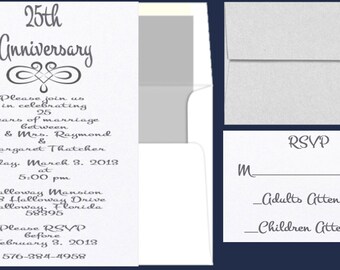 25th
Anniversary
Please join us
in celebrating
25
years of marriage
between
& Mrs. Raymond
&
Margaret Thatcher
March 3, 2013
at
5:00 pm
Mansion
Drive
Florida
58395
Please RSVP
before
3, 2013
576-384-4958
RSVP
M
Adults Atten
Children Atten